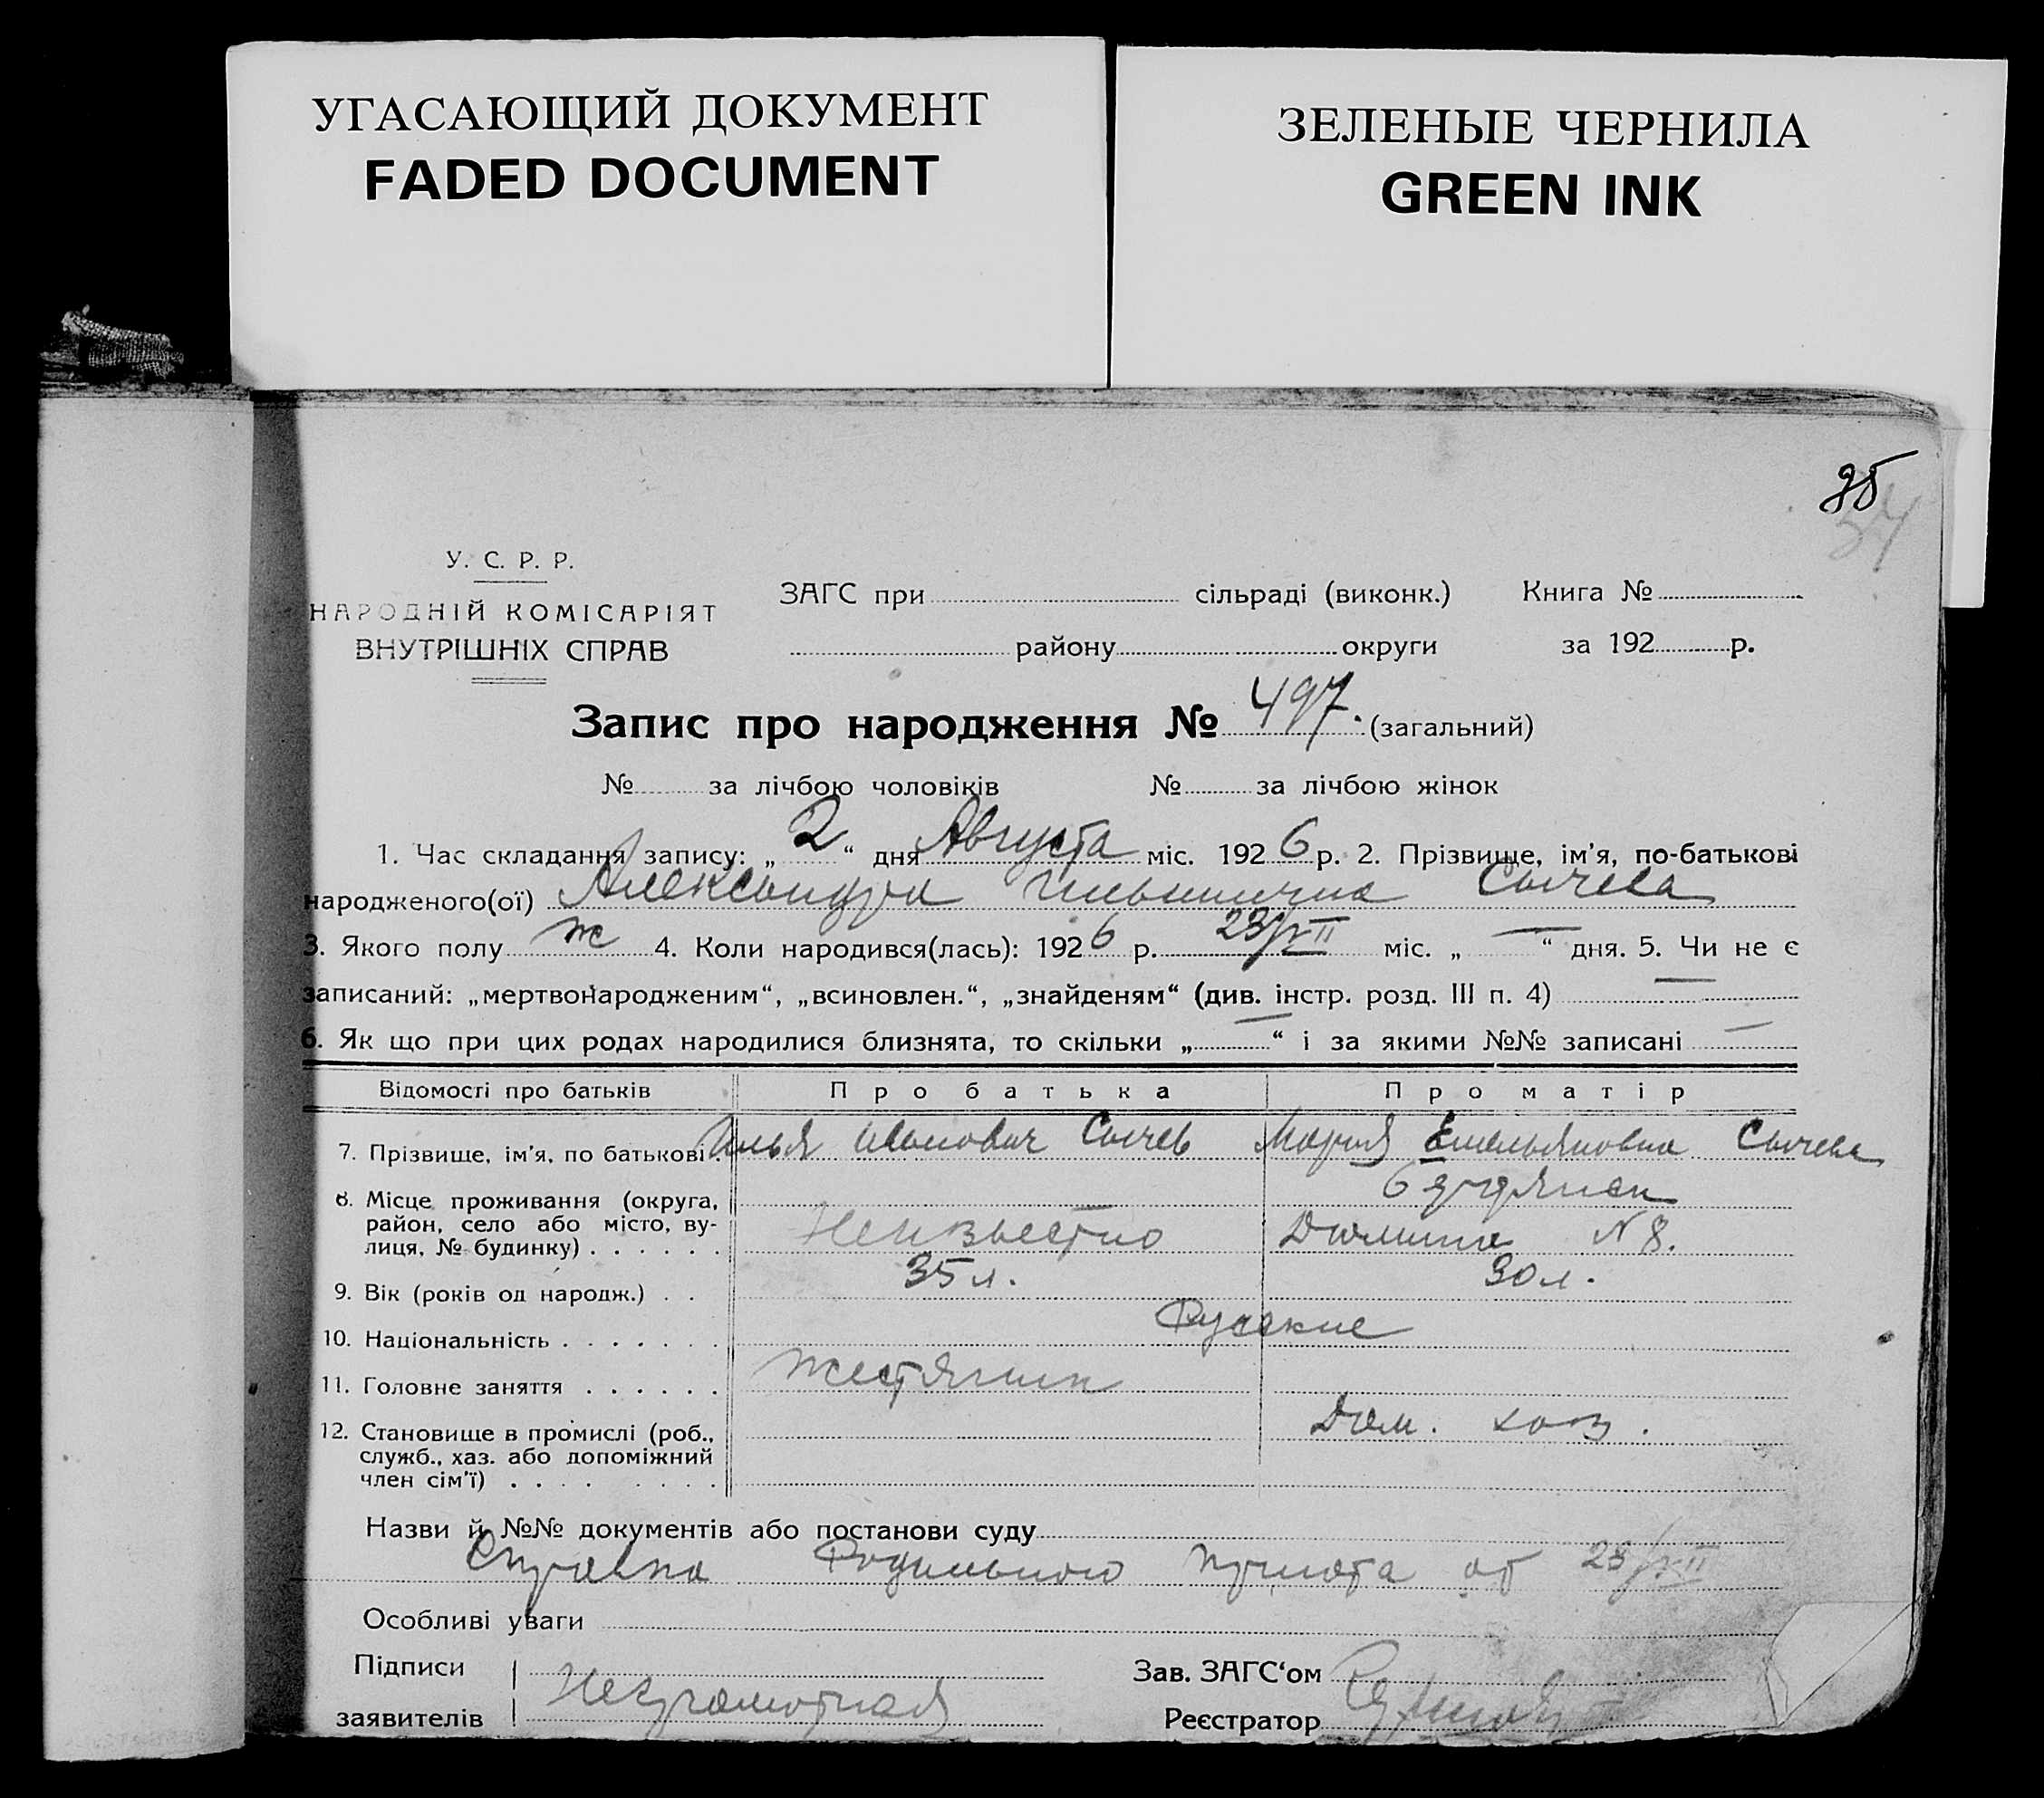 УГАСАЮЩИЙ ДОКУМЕНТ
FADED DOCUMENT
ЗЕЛЕНЫЕ ЧЕРНИЛА
GREEN INK
34
У. С. Р. Р.
НАРОДНІЙ КОМІСАРІЯТ
ВНУТРІШНІХ СПРАВ
ЗАГС при сільраді (виконк.) Книга №
району округи за 192 р.
Запис про народження № 497. (загальний)
№ за лічбою чоловіків № за лічбою жінок
1. Час складання запису: „ 2 “ дня Августа міс. 1926 р. 2. Прізвище, ім’я, по-батькові
народженого(ої) Александра Ильинична Сычева
3. Якого полу ж 4. Коли народився(лась): 1926 р. 23/VII міс. „ — “ дня. 5. Чи не є
записаний: „мертвонародженим“, „всиновлен.“, „знайденям“ (див. інстр. розд. III п. 4) —
6. Як що при цих родах народилися близнята, то скільки „ — “ і за якими №№ записані —
Відомості про батьків Про батька Про матір
7. Прізвище, ім’я, по батькові . Илья Иванович Сычев Мария Емельяновна Сычева
8. Місце проживання (округа,
район, село або місто, ву-
лиця, № будинку) . . . . . . Неизвестно N 8.
9. Вік (років од народж.) . . 35 л. 30 л.
10. Національність . . . . . . . Русские
11. Головне заняття . . . . . . Жестяник
12. Становище в промислі (роб., Дом. хоз.
служб., хаз. або допоміжний
член сім’ї) . . . . . . . .
Назви й №№ документів або постанови суду
Справка Родильного приюта от 23/VII
Особливі уваги
Підписи Зав. ЗАГС‘ом
заявителів Неграмотная Реєстратор